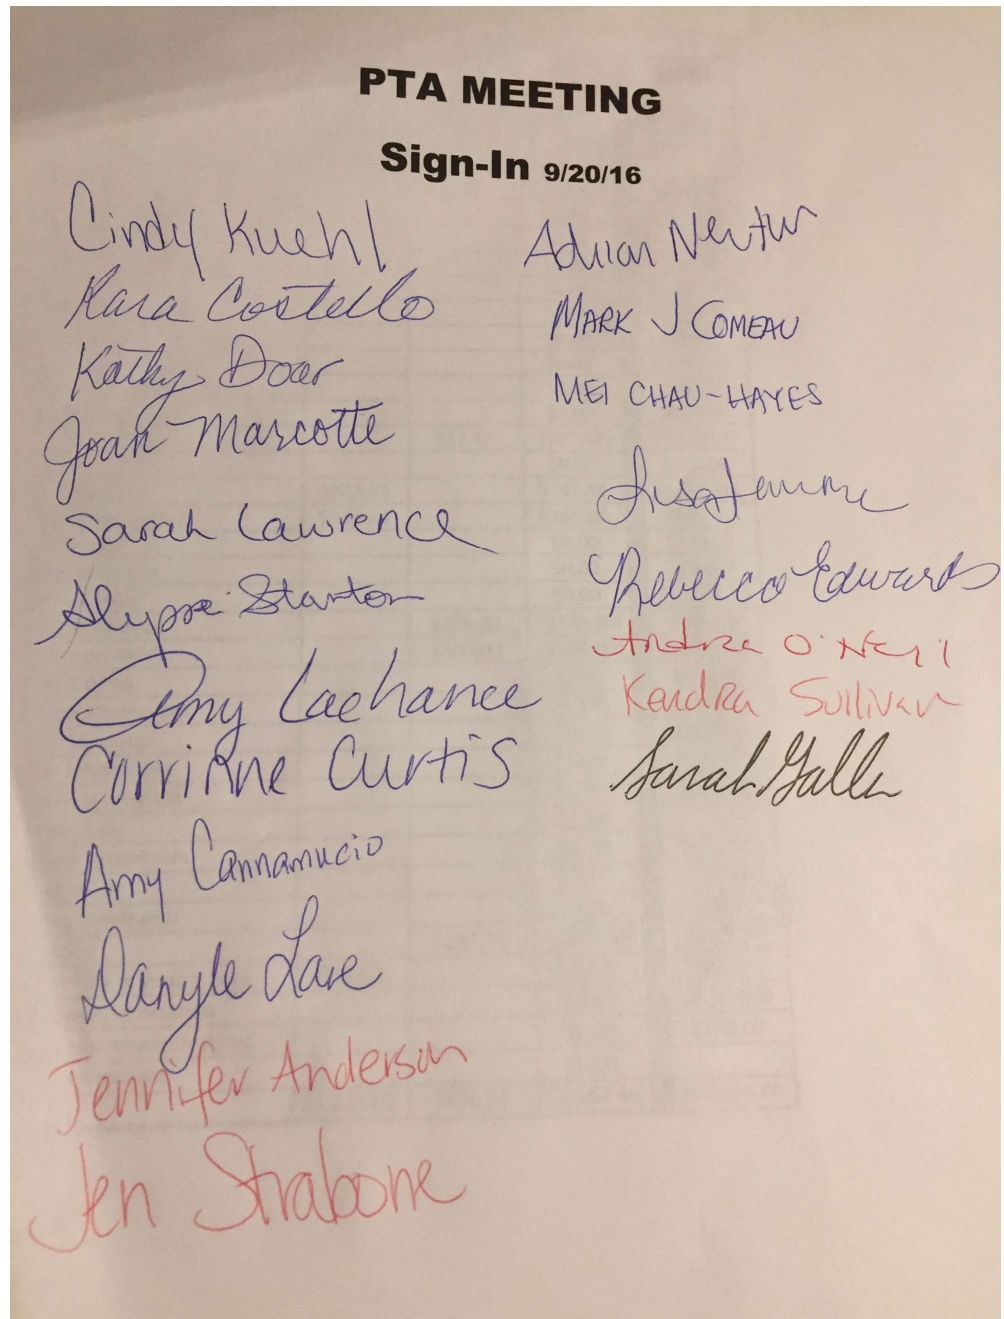 PTA MEETING
Sign-In 9/20/16
Cindy Kuehl
Kara Costello
Kathy Doar
Joan Marcotte
Sarah Lawrence
Stanton
Amy Lachance
Corrinne Curtis
Amy Cannamucio
Danyle Lave
Jennifer Anderson
Jen Strabone
Adrian
MARK J COMEAU
MEI CHAU-HAYES
Lisa
Rebecca Edwards
Andrea O'Neil
Kendra Sullivan
Sarah